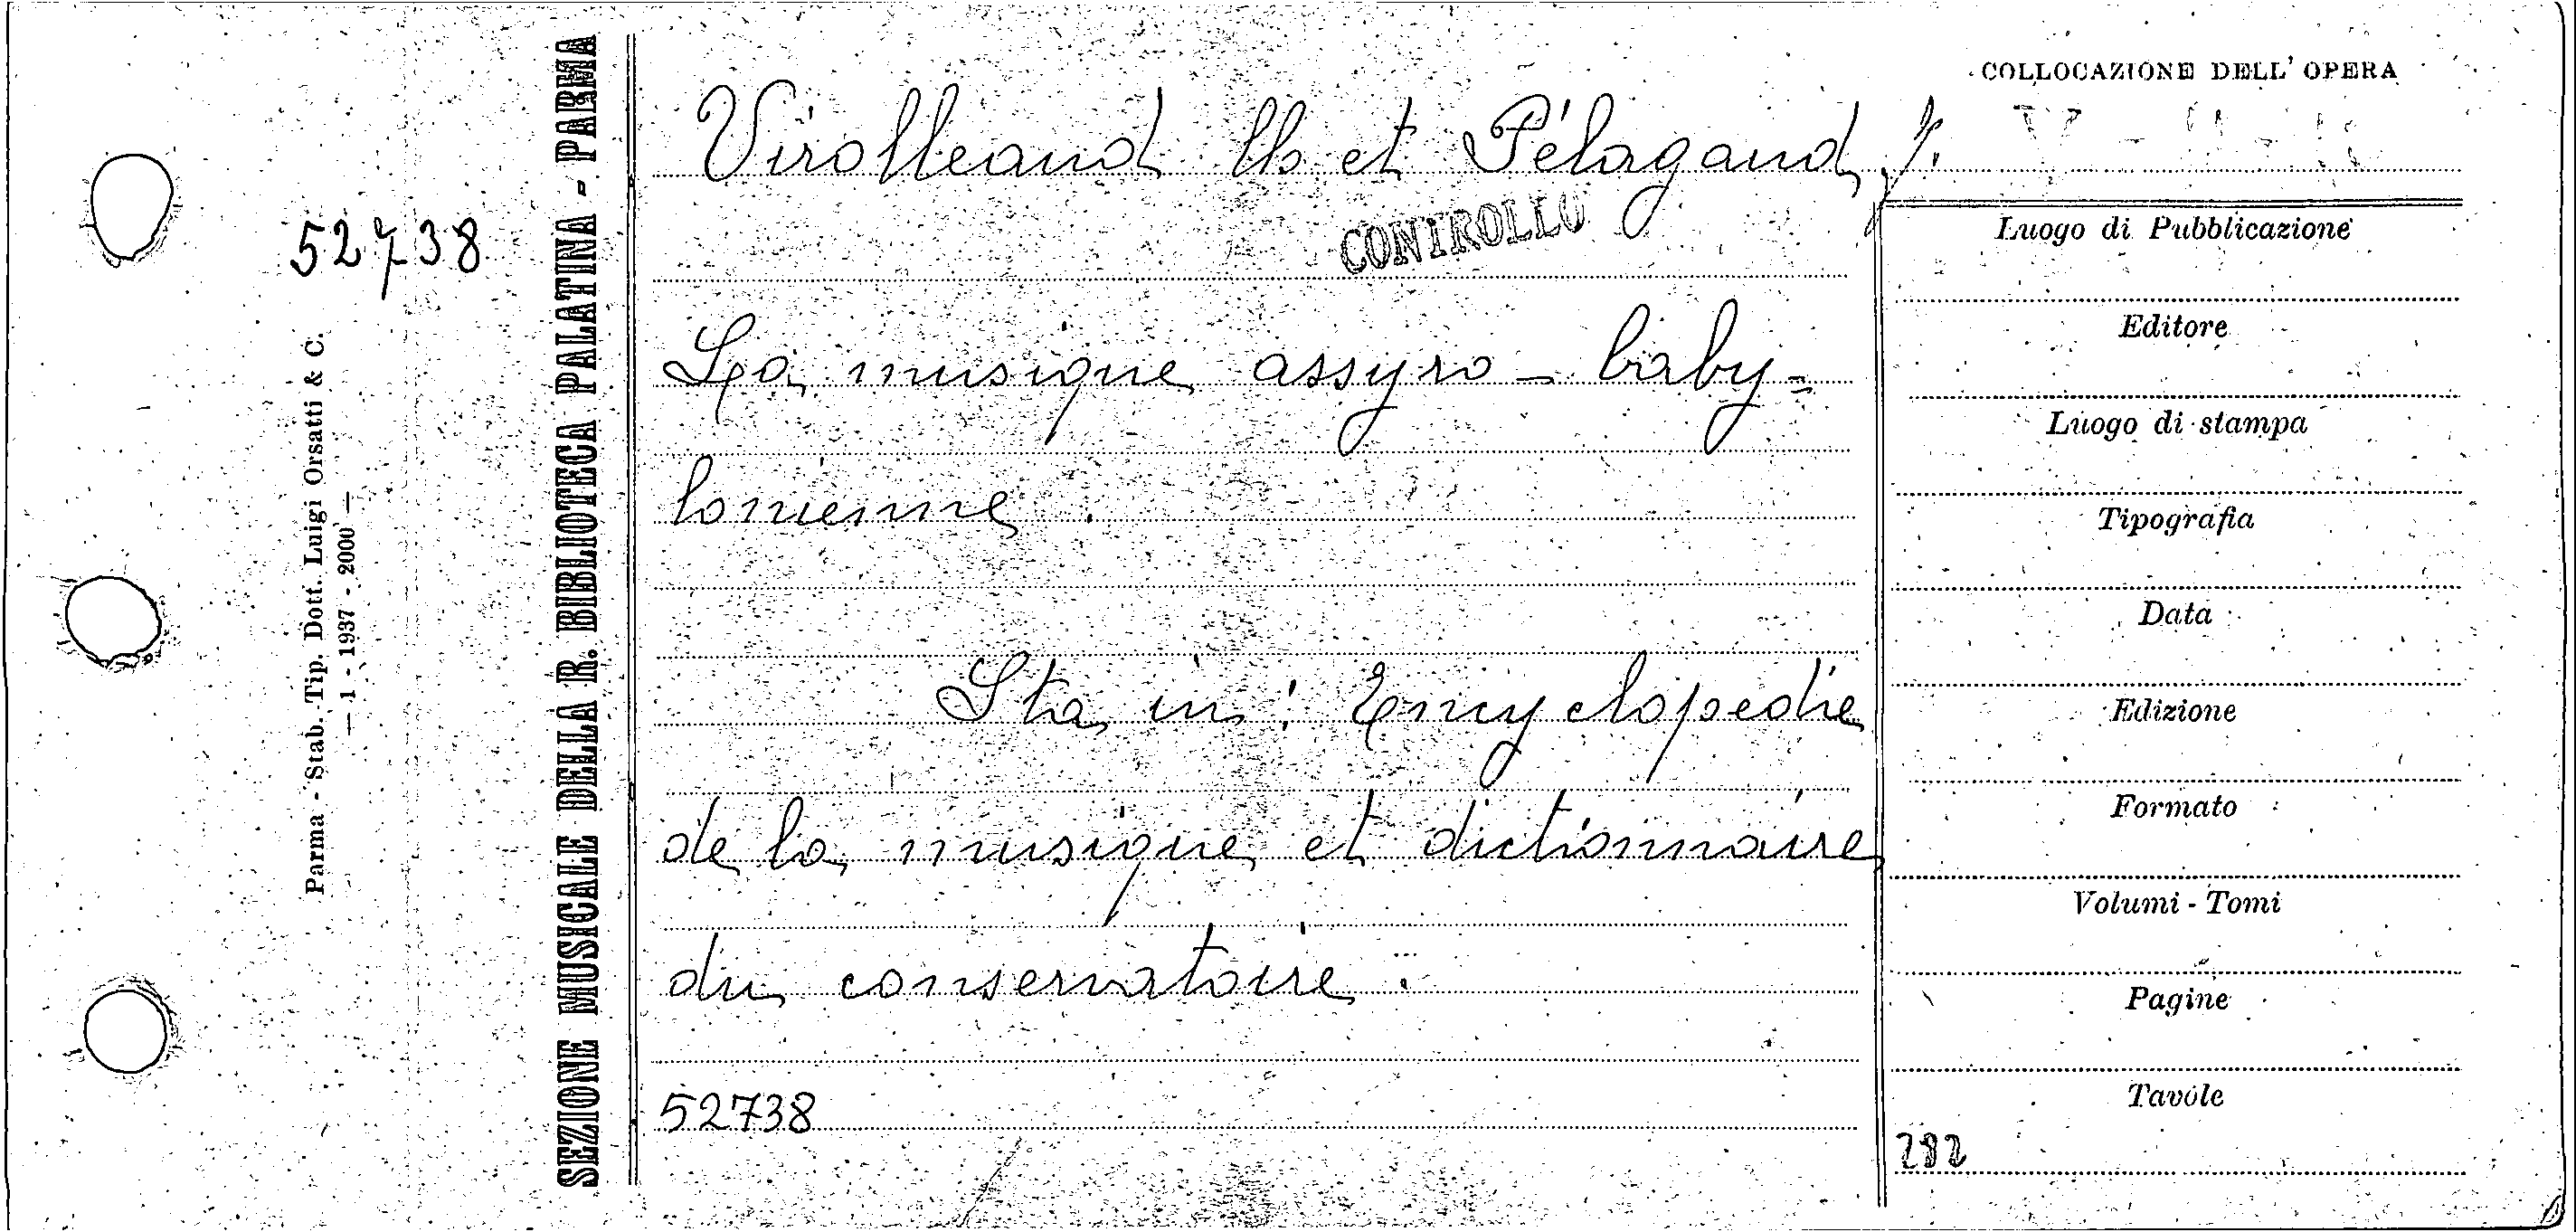 COLLOCAZIONE DELL' OPERA
Virolleaud Ch et Pélagaud, J.
CONTROLLO
52738
La musique assyro-baby=
lonienne.
Sta in: Encyclopedie
de la musique et dictionnaire
du conservatoire.
52738
Luogo di Pubblicazione
Editore
Luogo di stampa
Tipografia
Data
Edizione
Formato
Volumi - Tomi
Pagine
Tavole
282
SEZIONE MUSICALE DELLA R. BIBLIOTECA PALATINA - PARMA
Parma - Stab. Tip. Dott. Luigi Orsatti & C.
— 1 - 1937 - 2000 —